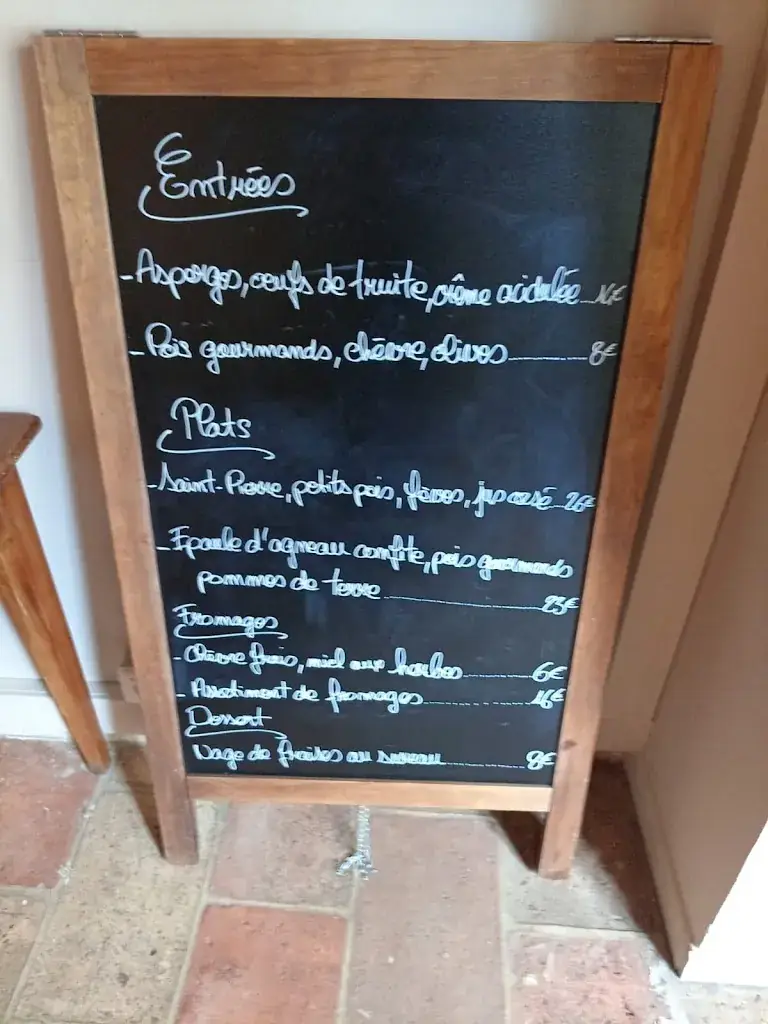 Entrées
- Asperges, oeufs de truite, crème acidulée...16€
- Pois gourmands, chèvre, olives............8€
Plats
- Saint-Pierre, petits pois, fèves, jus corsé..26€
- Epaule d'agneau confite, pois gourmands
pommes de terre......................23€
Fromages
- Chèvre frais, miel aux herbes............6€
- Assortiment de fromages............16€
Dessert
Nage de fraises au sureau............8€